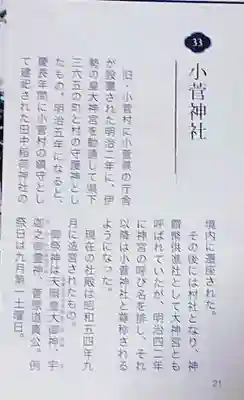 33
小菅神社
旧・小菅村に小菅県の庁舎
が設置された明治二年に、伊
勢の皇大神宮を勧請して県下
三六五の町と村の守護神とし
たもの。明治五年になると、
慶長年間に小菅村の鎮守とし
て建祀された田中稲荷神社の
境内に遷座された。
その後には村社となり、神
饌幣供進社として大神宮とも
呼ばれていたが、明治四二年
に神宮の呼び名を諱し、それ
以降は小菅神社と尊称される
ようになった。
現在の社殿は昭和五四年九
月に造営されたもの。
御祭神は天照皇大御神、宇
迦之御霊神、菅原道真公。例
祭日は九月第一土曜日。
21